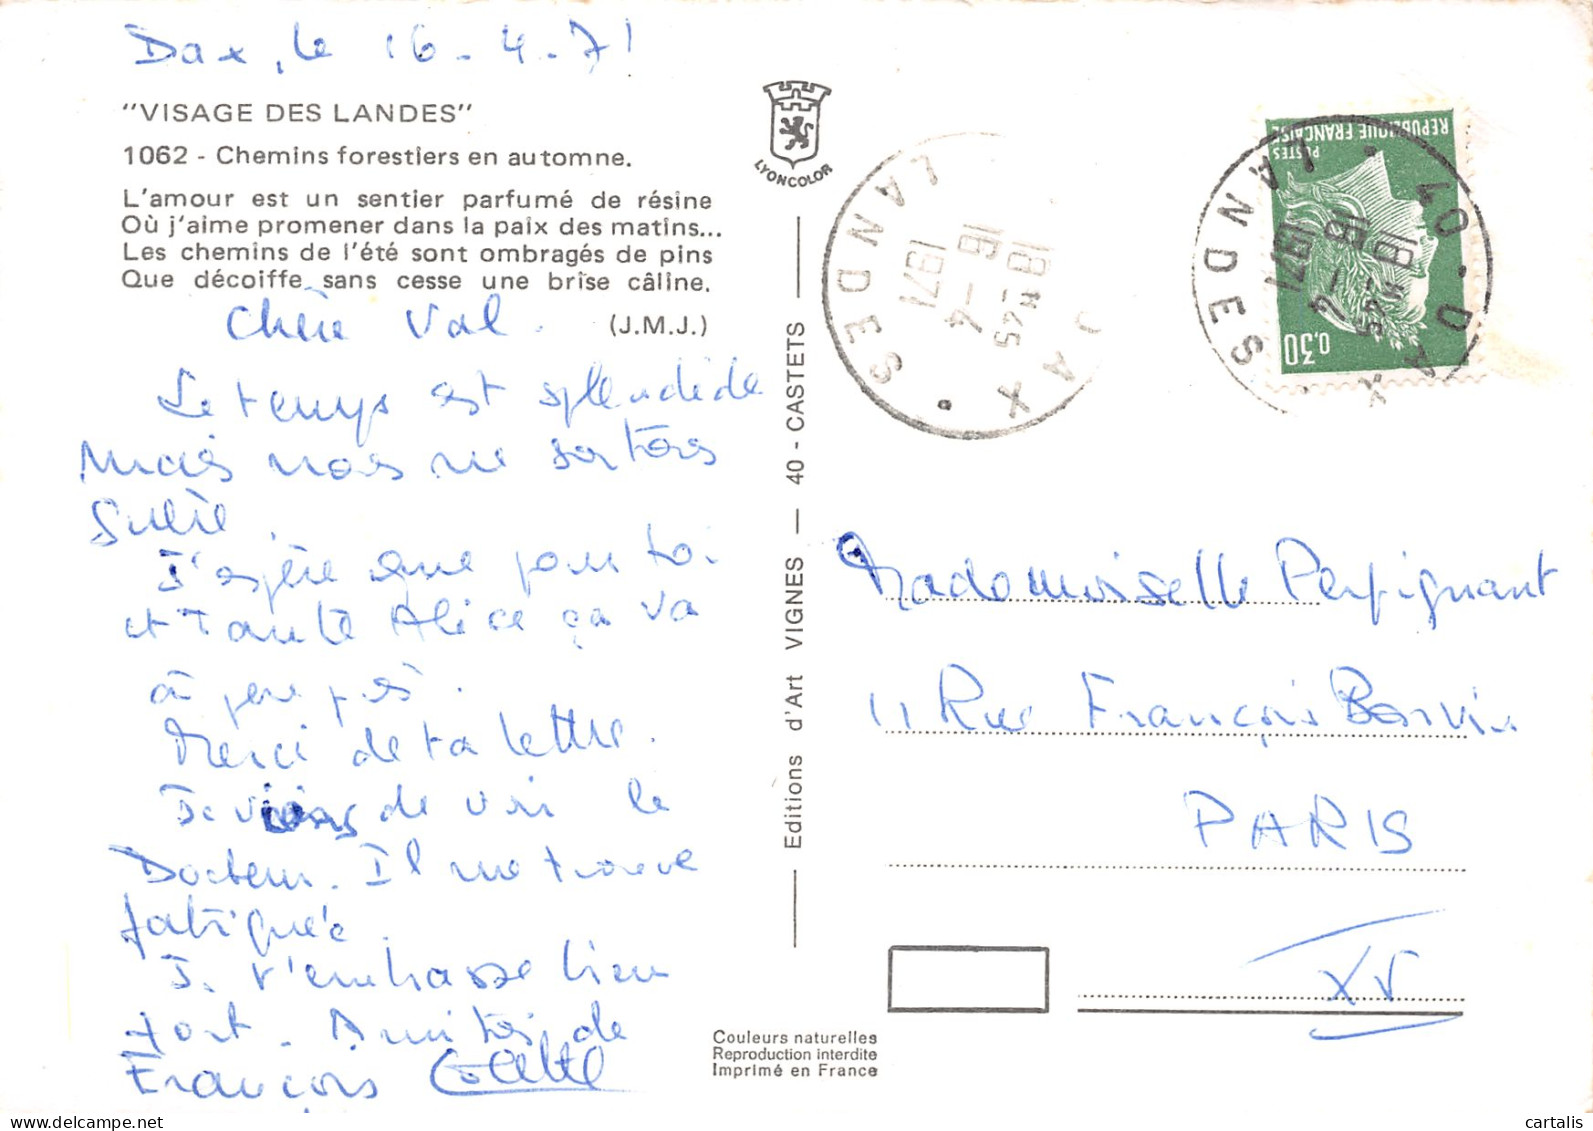 Dax, le 16-4-71
"VISAGE DES LANDES"
1062 - Chemins forestiers en automne.
L'amour est un sentier parfumé de résine
Où j'aime promener dans la paix des matins...
Les chemins de l'été sont ombragés de pins
Que décoiffe sans cesse une brise câline.
(J.M.J.)
Chère Val.
Le temps est splendide
Mais nous ne sortons
Guère.
J'espère que pour toi
et Tante Alice ça va
à peu près.
Merci de ta lettre.
Je viens de voir le
Docteur. Il me trouve
fatiguée.
Je t'embrasse bien
fort. Amitiés de
François Colette
LYONCOLOR
Editions d'Art VIGNES — 40 - CASTETS
Couleurs naturelles
Reproduction interdite
Imprimé en France
DAX
LANDES
18H45
16-4
1971
POSTES
REPUBLIQUE FRANCAISE
0,30
40 DAX
LANDES
18H45
16-4
1971
Mademoiselle Perpignant
11 Rue François Bonvin
PARIS
XV
cartalis | Delcampe.net